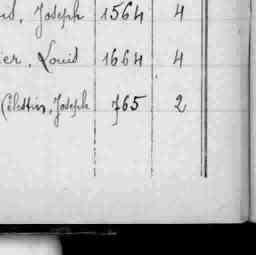 Joseph 1564 4
ier, Louis 1664 4
Célestin, Joseph 765 2